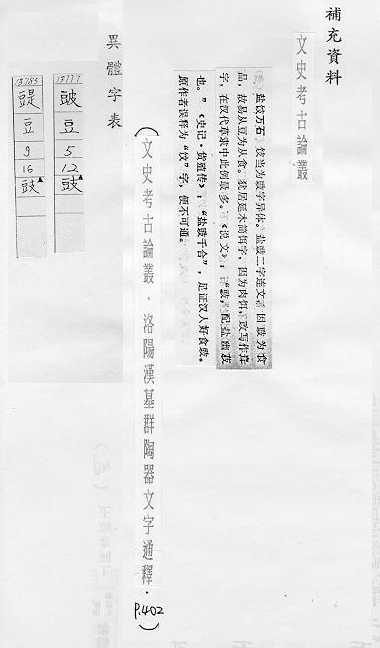 補充資料
文史考古論叢
盐饺万石 饺当为豉字异体。盐豉二字连文 因豉为食
品，故易从豆为从食。犹居延木简饵字，因为肉饵，改写作
字，在汉代草隶中此例最多。《说文》， 配盐幽菽
也。”《史记·货殖传》，“盐豉千合”，足证汉人好食豉。
原作者误释为“饺”字，便不可通。
（文史考古論叢．洛陽漢墓群陶器文字通釋．P.402）
異體字表
13777
豉
豆
5
12
豉
13785
豆
9
16
豉